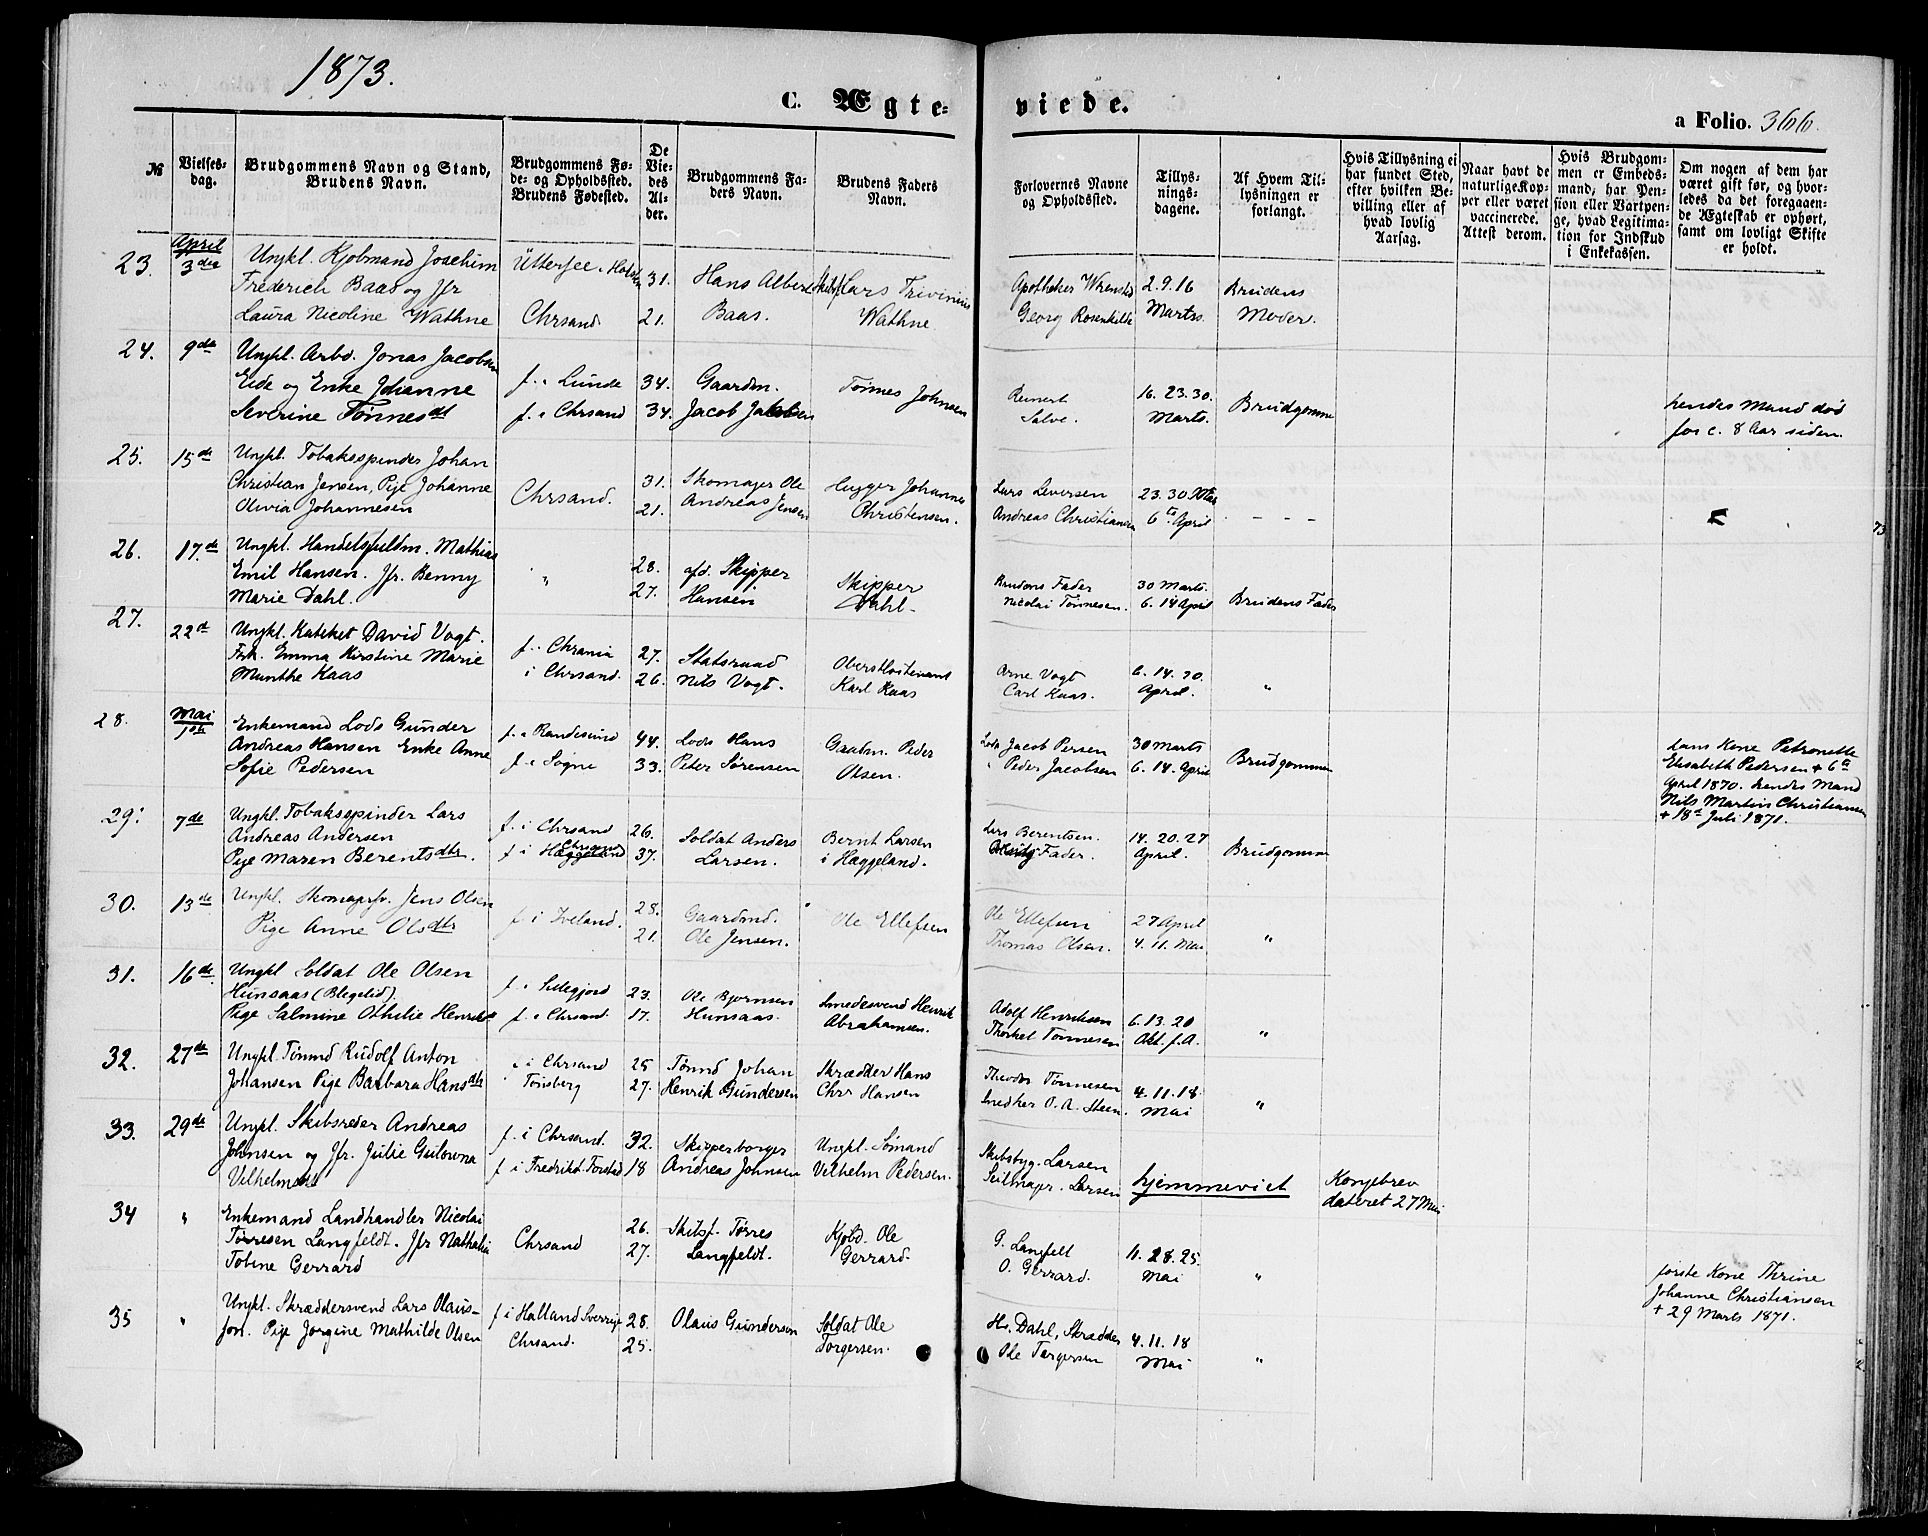 1873.
C. Ægte= viede.
a Folio. 366.
№
Vielses-dag.
Brudgommens Navn og Stand, Brudens Navn.
Brudgommens Fø-de- og Opholdssted. Brudens Fødested.
De Vie-des Al-der.
Brudgommens Fa-ders Navn.
Brudens Faders Navn.
Forlovernes Navne og Opholdssted.
Tillys-nings-dagene.
Af Hvem Til-lysningen er forlangt.
Hvis Tillysning ei har fundet Sted, efter hvilken Be-villing eller af hvad lovlig Aarsag.
Naar havt de naturlige Kop-per eller været vaccinerede. Attest derom.
Hvis Brudgom-men er Embeds-mand, har Pen-sion eller Vartpen-ge, hvad Legitima-tion for Indskud i Enkekassen.
Om nogen af dem har været gift før, og hvor-ledes da det foregaaen-de Ægteskab er ophørt, samt om lovligt Skifte er holdt.
April
23. 3die Ungkl. Kjøbmand Joachim Ütersee i Holsten 31. Hans Albert Skibsf. Lars Trivinius Apotheker 2. 9. 16 Brudens
Frederich Baas og Jfr
Laura Nicoline Wathne Chrsand 21. Baas. Wathne Georg Rosenkilde Marts. Moder.
24. 9de Ungkl. Arbd. Jonas Jacobsen
Eide og Enke Johanne f. i Lunde 34. Gaardm. Tønnes Johnsen Reinert 16. 23. 30. Brudgomme hendes Mand død
Severine Tønnesdt f. i Chrsand 34. Jacob Jacobsen Salve. Marts. for c. 8 Aar siden.
25. 15de Ungkl. Tobaksspinder Johan
Christian Jensen, Pige Johanne Chrsand. 31. Skomager Ole Ligger Johannes Lars Leversen 23. 30 Mts
Olivia Johannesen 21. Andreas Jensen Christensen. Andreas Christiansen 6te April - - -
26. 17de Ungkl. Handelsfuldm. Mathias
Emil Hansen. Jfr. Benny " 28. afd. Skipper Skipper Brudens Fader 30 Marts.
Marie Dahl. 27. Hansen Dahl- Nicolai Tønnesen. 6. 14 April Brudens Fader
27. 22d Ungkl. Kateket David Vogt.
Frk. Emma Kirstine Marie f. i Chrania 27. Statsraad Oberstløitenant Arne Vogt 6. 14. 20.
Munthe Kaas i Chrsand. 26. Nils Vogt. Karl Kaas Carl Kaas. April. "
Mai
28. 1ste Enkemand Lods Gunder f. i Randesund 44. Lods Hans Gaardm. Peder Lods Jacob Persen 30 Marts Brudgommen hans Kone Petronette
Andreas Hansen Enke Anne f. i Søgne 33. Peter Sørensen Olsen. " Peder Jacobsen 6. 14. April Elisabeth Pedersen + 6te
Sofie Pedersen April 1870. hendes Mand
Nils Martin Christiansen
+ 18de Juli 1871.
29. 7de Ungkl. Tobaksspinder Lars f. i Chrsand 26. Soldat Anders Bernt Larsen Lars Berentsen. 14. 20. 27
Andreas Andersen Chrsand
Pige Maren Berentsdtr. f. i Hæggeland 37. Larsen. i Hæggeland. Fader. April. Brudgomme
30. 13de Ungkl. Skomagersv. Jens Olsen f. i Iveland. 28. Gaardmd. Ole Ellefsen Ole Ellefsen 27 April
Pige Anne Olsdtr 21. Ole Jensen. Thomas Olsen. 4. 11. Mai "
31. 16de Ungkl Soldat Ole Olsen
Hunsaas (Blegelid) f. i Sillegjord 23. Ole Bjørnsen Smedesvend Henrik Adolf Henriksen 6. 13. 20
Pige Salmine Othilie Henriksdt f. i Chrsand. 17. Hunsaas. Abrahamsen. Thorkel Tønnesen Okt. f. A. "
32. 27de Ungkl. Tømmd Rudolf Anton i Chrsand 25 Tømmd Johan Skrædder Hans Theodor Tønnesen 4. 11. 18
Johansen Pige Barbara Hansdtr i Tønsberg 27. Henrik Gundersen Chr Hansen Snedker O. A. Steen. Mai "
33. 29de Ungkl. Skibsreder Andreas f. i Chrsand. 32. Skipperborger Ungkl. Sømand Skibsbyg. Larsen hjemmeviet Kongebrev
Johnsen og Jfr. Julie Gulowna f i Fredrikd. Torsted 18 Andreas Johnsen Vilhelm Pedersen. Seilmager. Larsen dateret 27 Mai
Vilhelmsdt
34 " Enkemand Landhandler Nicolai 26. Skibsf. Tørres Kjøbd. Ole G. Langfelt 11. 18. 25. første Kone Thrine
Tørresen Langfeldt. Jfr Nathalia Chrsand 27. Langfeldt. Gerrard. O. Gerrard. Mai " Johanne Christiansen
Tobine Gerrard + 29 Marts 1871.
35 " Ungkl. Skræddersvend Lars Olaus- f i Halland Sverrig 28. Olaus Gundersen Soldat Ole Hs. Dahl, Skrædder 4. 11. 18
son. Pige Jorgine Mathilde Olsen Chrsand. 25. Torgersen. Ole Torgersen Mai "